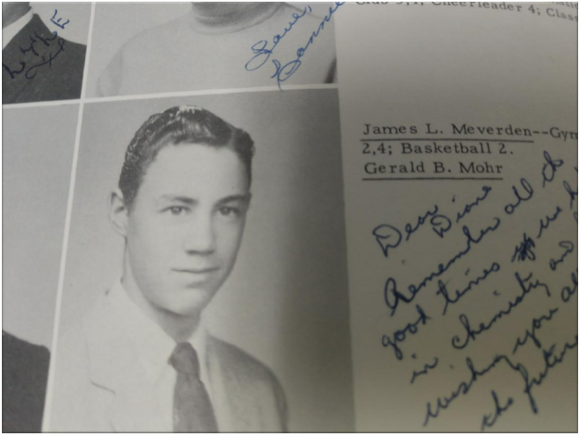 Love,
Connie
Club 3,4; Cheerleader 4; Class
James L. Meverden--Gym
2,4; Basketball 2.
Gerald B. Mohr
Dear Diane
Remember all th
good times we h
in chemistry and
wishing you al
the future